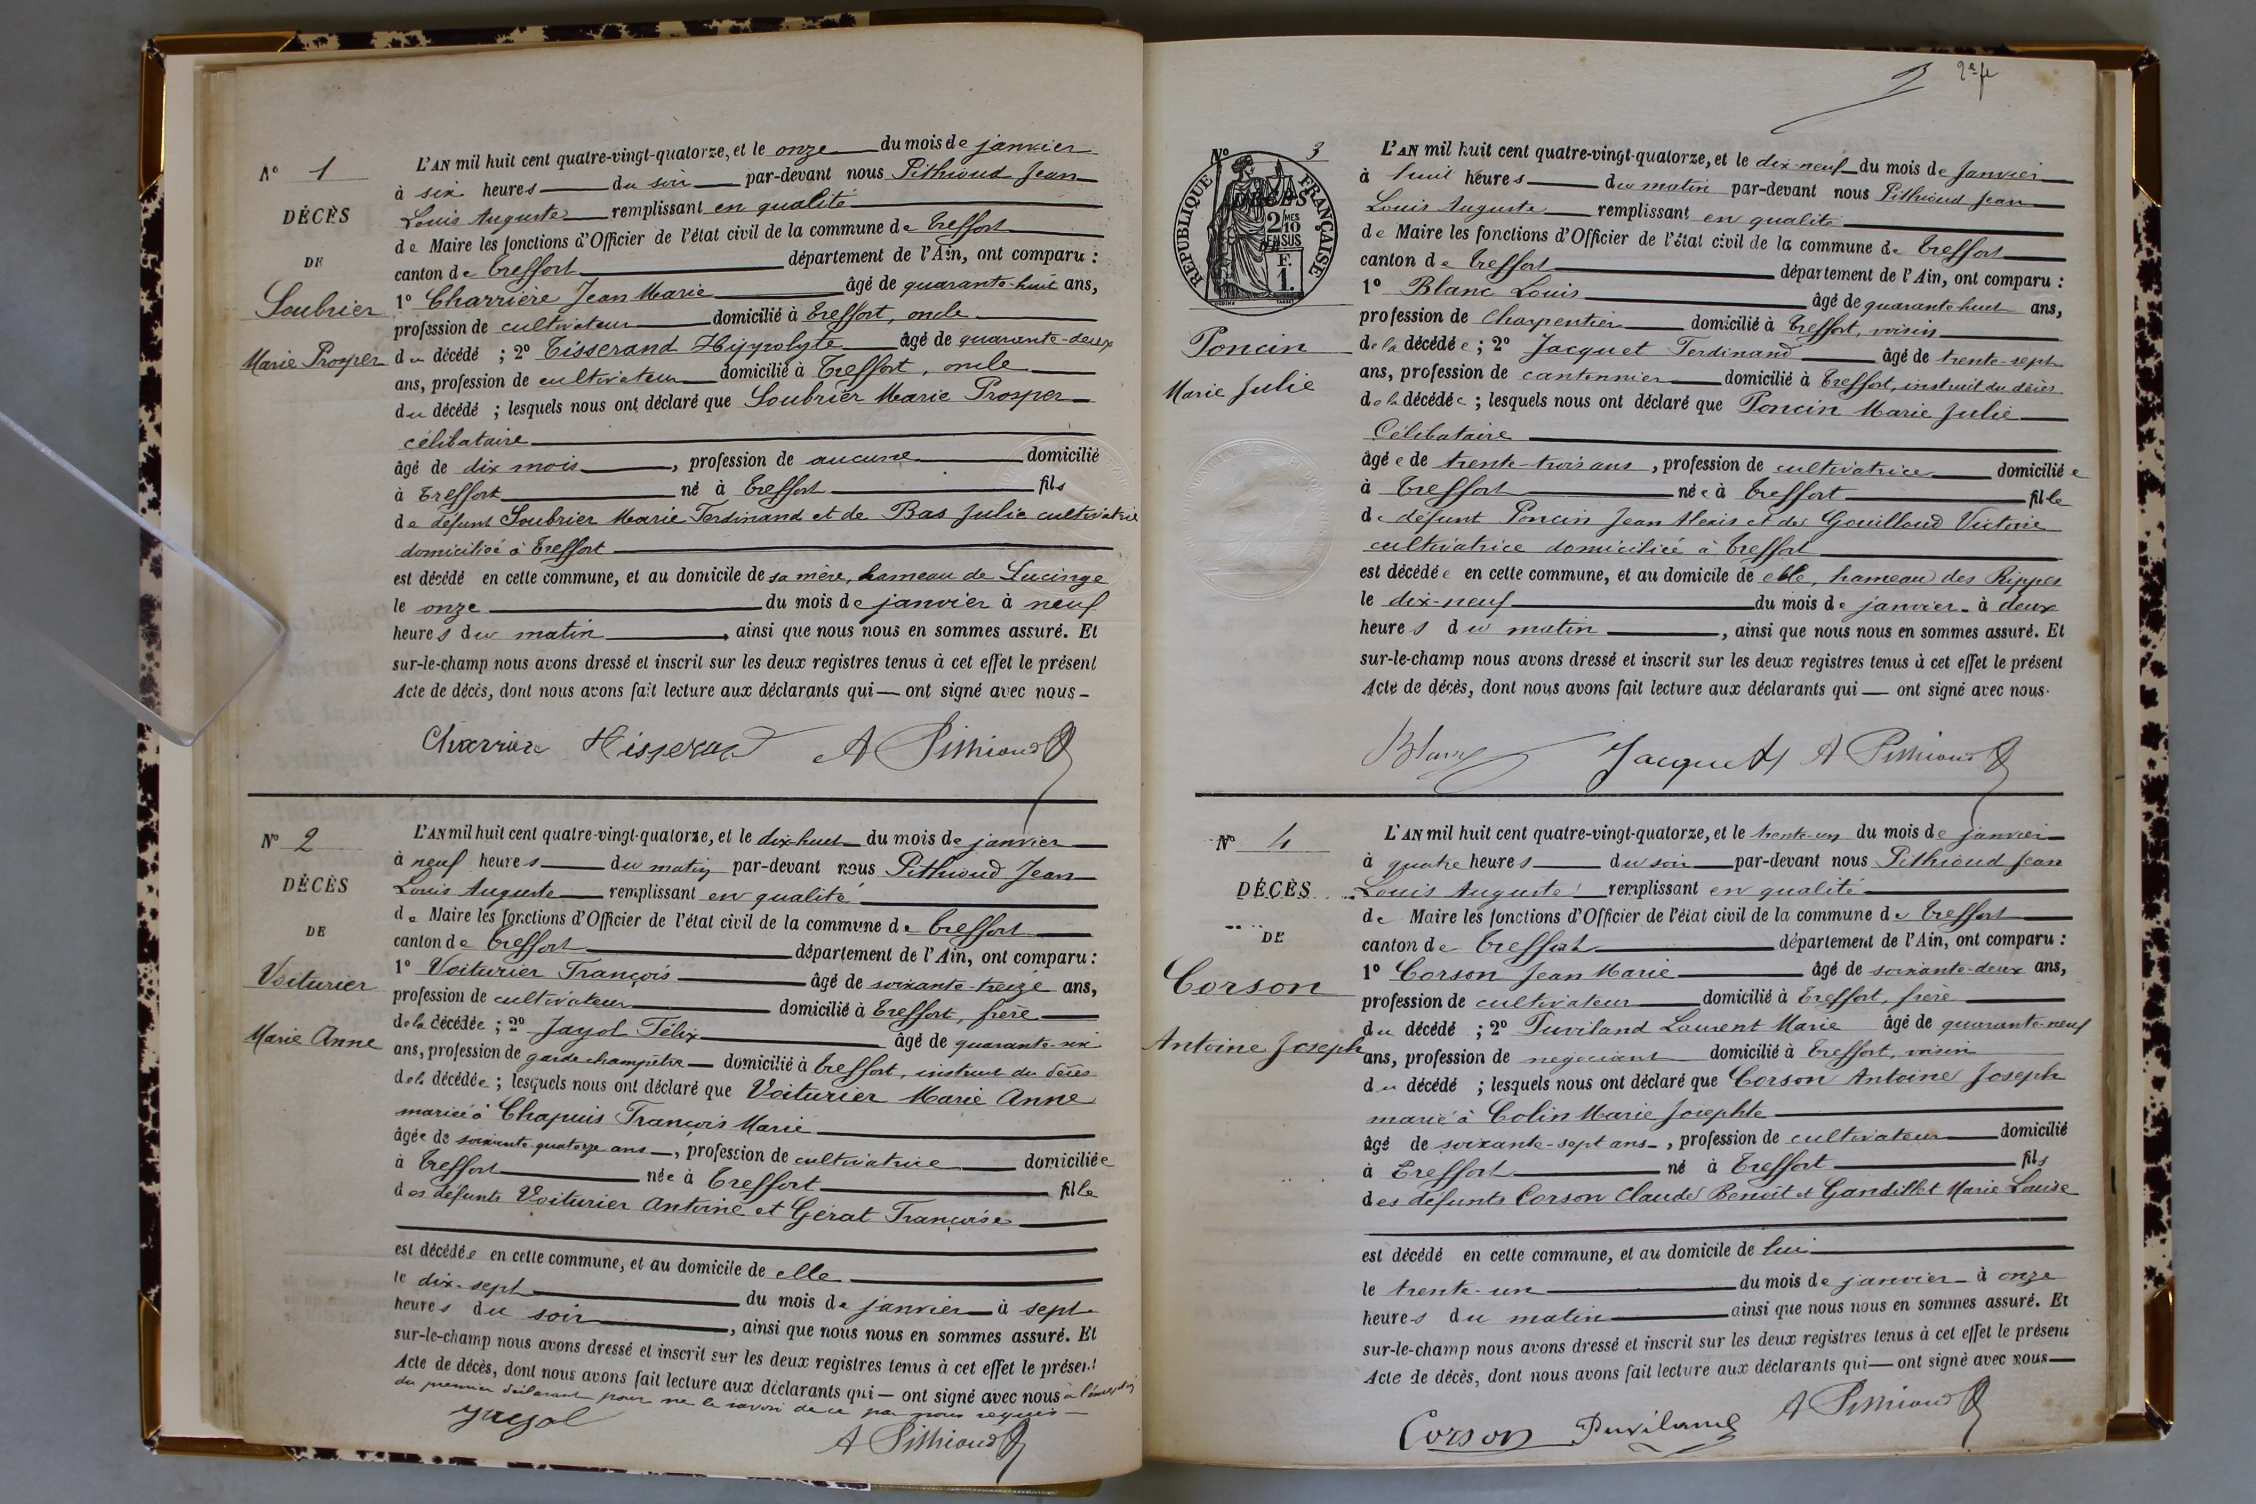 Nº 1
DÉCÈS
DE
Soubrier
Marie Prosper
L'AN mil huit cent quatre-vingt-quatorze, et le onze du mois de janvier
à six heures du soir par-devant nous Pithioud Jean
Louis Auguste remplissant en qualité
de Maire les fonctions d'Officier de l'état civil de la commune de Treffort
canton de Treffort département de l'Ain, ont comparu :
1º Charrière Jean Marie âgé de quarante-huit ans,
profession de cultivateur domicilié à Treffort, oncle
du décédé ; 2º Tisserand Hippolyte âgé de quarante-deux
ans, profession de cultivateur domicilié à Treffort, oncle
du décédé ; lesquels nous ont déclaré que Soubrier Marie Prosper
célibataire
âgé de dix mois, profession de aucune domicilié
à Treffort né à Treffort fils
de défunt Soubrier Marie Ferdinand et de Bas Julie cultivatrice
domiciliée à Treffort
est décédé en cette commune, et au domicile de sa mère, hameau de Lucinge
le onze du mois de janvier à neuf
heures du matin, ainsi que nous nous en sommes assuré. Et
sur-le-champ nous avons dressé et inscrit sur les deux registres tenus à cet effet le présent
Acte de décès, dont nous avons fait lecture aux déclarants qui — ont signé avec nous -
Charrière HTisserand A Pithioud
Nº 2
DÉCÈS
DE
Voiturier
Marie Anne
L'AN mil huit cent quatre-vingt-quatorze, et le dix-huit du mois de janvier
à neuf heures du matin par-devant nous Pithioud Jean
Louis Auguste remplissant en qualité
de Maire les fonctions d'Officier de l'état civil de la commune de Treffort
canton de Treffort département de l'Ain, ont comparu :
1º Voiturier François âgé de soixante-treize ans,
profession de cultivateur domicilié à Treffort, frère
de la décédée ; 2º Jayol Félix âgé de quarante-six
ans, profession de garde champêtre domicilié à Treffort, instruit du décès
de la décédée ; lesquels nous ont déclaré que Voiturier Marie Anne
mariée à Chapuis François Marie
âgée de soixante-quatorze ans, profession de cultivatrice domiciliée
à Treffort née à Treffort fille
des défunts Voiturier Antoine et Gérat Françoise
est décédée en cette commune, et au domicile de elle
le dix-sept du mois de janvier à sept
heures du soir, ainsi que nous nous en sommes assuré. Et
sur-le-champ nous avons dressé et inscrit sur les deux registres tenus à cet effet le présent
Acte de décès, dont nous avons fait lecture aux déclarants qui — ont signé avec nous à l'exception
du premier déclarant pour ne le savoir de ce par nous requis
Jayol
A Pithioud
3 2e f
Nº 3
RÉPUBLIQUE FRANÇAISE
DÉCÈS
2/10 MES
EN SUS
F.
1.
Poncin
Marie Julie
L'AN mil huit cent quatre-vingt-quatorze, et le dix-neuf du mois de Janvier
à huit heures du matin par-devant nous Pithioud Jean
Louis Auguste remplissant en qualité
de Maire les fonctions d'Officier de l'état civil de la commune de Treffort
canton de Treffort département de l'Ain, ont comparu :
1º Blanc Louis âgé de quarante huit ans,
profession de Charpentier domicilié à Treffort, voisin
de la décédée ; 2º Jacquet Ferdinand âgé de trente-sept
ans, profession de cantonnier domicilié à Treffort, instruit du décès
de la décédée ; lesquels nous ont déclaré que Poncin Marie Julie
Célibataire
âgée de trente-trois ans, profession de cultivatrice domiciliée
à Treffort née à Treffort fille
de défunt Poncin Jean Alexis et de Gouilloud Victoire
cultivatrice domiciliée à Treffort
est décédée en cette commune, et au domicile de elle, hameau des Rippes
le dix-neuf du mois de janvier à deux
heures du matin, ainsi que nous nous en sommes assuré. Et
sur-le-champ nous avons dressé et inscrit sur les deux registres tenus à cet effet le présent
Acte de décès, dont nous avons fait lecture aux déclarants qui — ont signé avec nous.
Blanc Jacquet A Pithioud
Nº 4
DÉCÈS
DE
Corson
Antoine Joseph
L'AN mil huit cent quatre-vingt-quatorze, et le trente-un du mois de janvier
à quatre heures du soir par-devant nous Pithioud Jean
Louis Auguste remplissant en qualité
de Maire les fonctions d'Officier de l'état civil de la commune de Treffort
canton de Treffort département de l'Ain, ont comparu :
1º Corson Jean Marie âgé de soixante-deux ans,
profession de cultivateur domicilié à Treffort, frère
du décédé ; 2º Puviland Laurent Marie âgé de quarante-neuf
ans, profession de negociant domicilié à Treffort, voisin
du décédé ; lesquels nous ont déclaré que Corson Antoine Joseph
marié à Colin Marie Josephte
âgé de soixante-sept ans, profession de cultivateur domicilié
à Treffort né à Treffort fils
des défunts Corson Claude Benoît et Gandillet Marie Louise
est décédé en cette commune, et au domicile de lui
le trente-un du mois de janvier à onze
heures du matin ainsi que nous nous en sommes assuré. Et
sur-le-champ nous avons dressé et inscrit sur les deux registres tenus à cet effet le présent
Acte de décès, dont nous avons fait lecture aux déclarants qui — ont signé avec nous
Corson Puviland A Pithioud